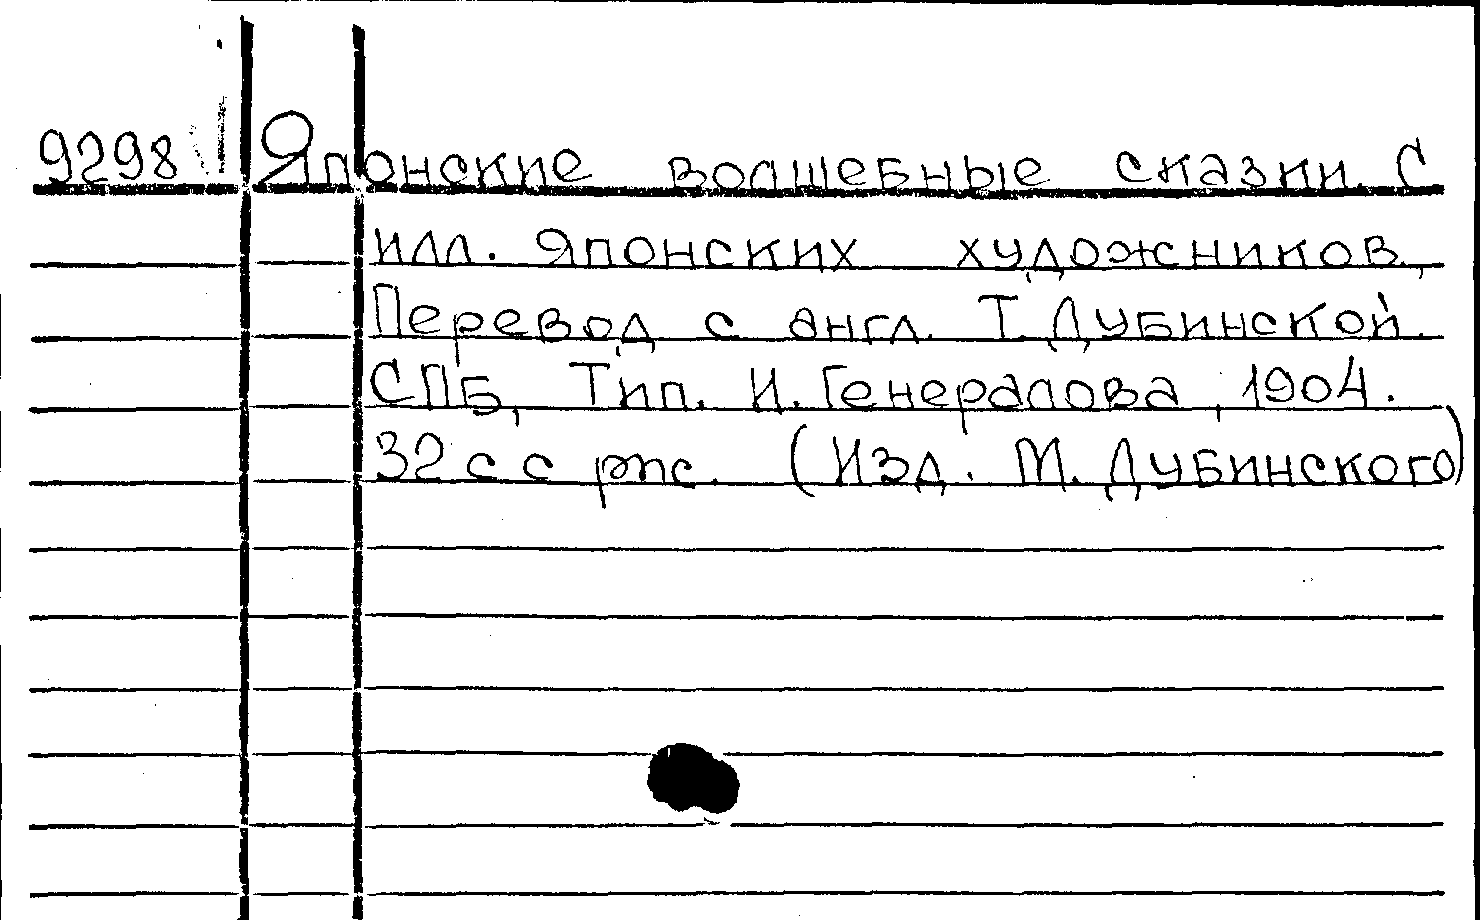 9298 Японские волшебные сказки. С
илл. японских художников.
Перевод с англ. Т. Дубинской.
СПБ, Тип. И. Генералова, 1904.
32 с с рис. (Изд. М. Дубинского)